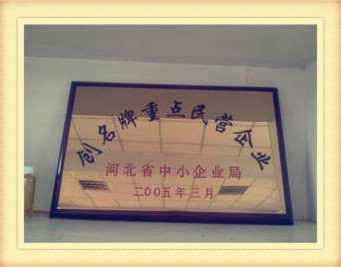 创名牌重点民营企业
河北省中小企业局
二00五年三月